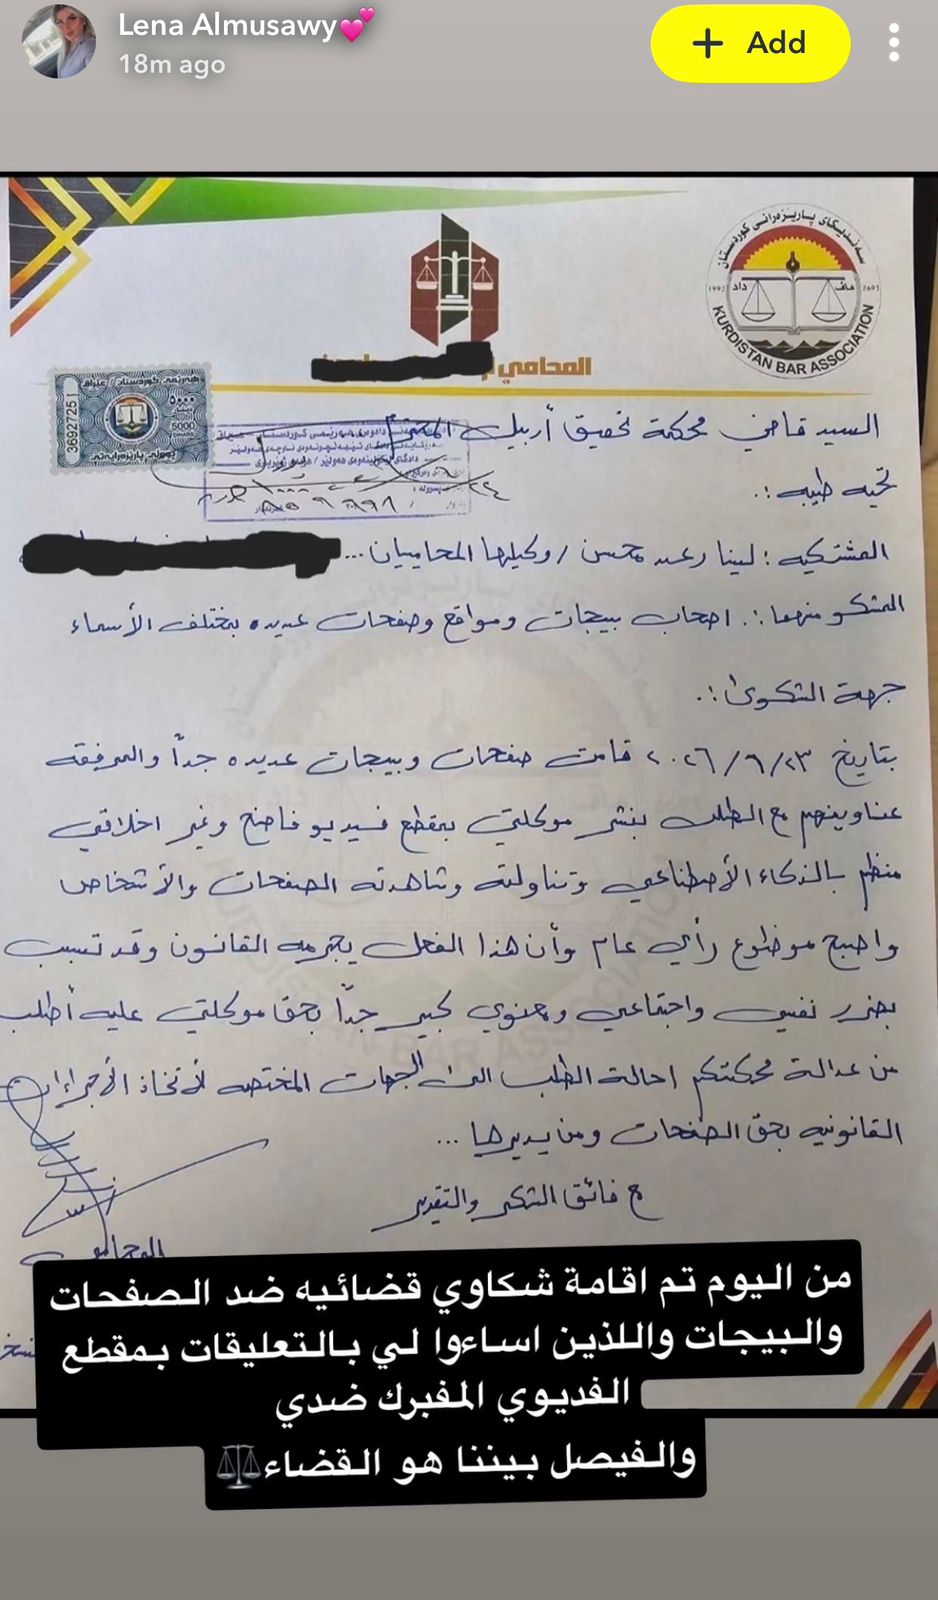 Lena Almusawy💕
18m ago
+ Add
سەندیکای پارێزەرانی کوردستان
داد
ماف
1992
2693
KURDISTAN BAR ASSOCIATION
المحامي
هەرێمی کوردستان / عێراق
٥٠٠٠
5000
36927251
السيد قاضي محكمة تحقيق أربيل المحترم
تحيه طيبه :.
المشتكيه : لينا رعد محسن / وكيلها المحاميان ...
المشكو منهما :. اصحاب بيجات ومواقع وصفحات عديده بمختلف الأسماء
جهة الشكوى :.
بتاريخ قامت صفحات وبيجات عديده جداً والمرفقه
عناوينهم مع الطلب بنشر موكلتي بمقطع فيديو فاضح وغير اخلاقي
منظم بالذكاء الأصطناعي وتناولته وشاهدته الصفحات والأشخاص
واصبح موضوع رأي عام وأن هذا الفعل يجرمه القانون وقد تسبب
بضرر نفسي واجتماعي ومعنوي كبير جداً بحق موكلتي عليه أطلب
من عدالة محكمتكم احالة الطلب الى الجهات المختصه لأتخاذ الأجراءات
القانونيه بحق الصفحات ومن يديرها ...
مع فائق الشكر والتقدير
من اليوم تم اقامة شكاوي قضائيه ضد الصفحات
والبيجات واللذين اساءوا لي بالتعليقات بمقطع
الفديوي المفبرك ضدي
والفيصل بيننا هو القضاء⚖️